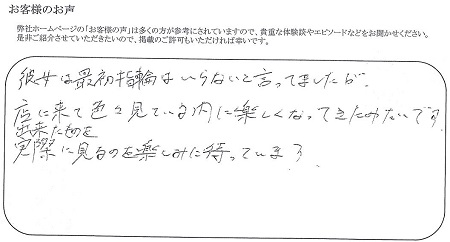 お客様のお声
弊社ホームページの「お客様の声」は多くの方が参考にされていますので、貴重な体験談やエピソードなどをお聞かせください。
是非ご紹介させていただきたいので、掲載のご許可もいただければ幸いです。
彼女は最初指輪はいらないと言ってましたが、
店に来て色々見ている内に楽しくなってきたみたいです
出来たものを
実際に見るのを楽しみに待っています